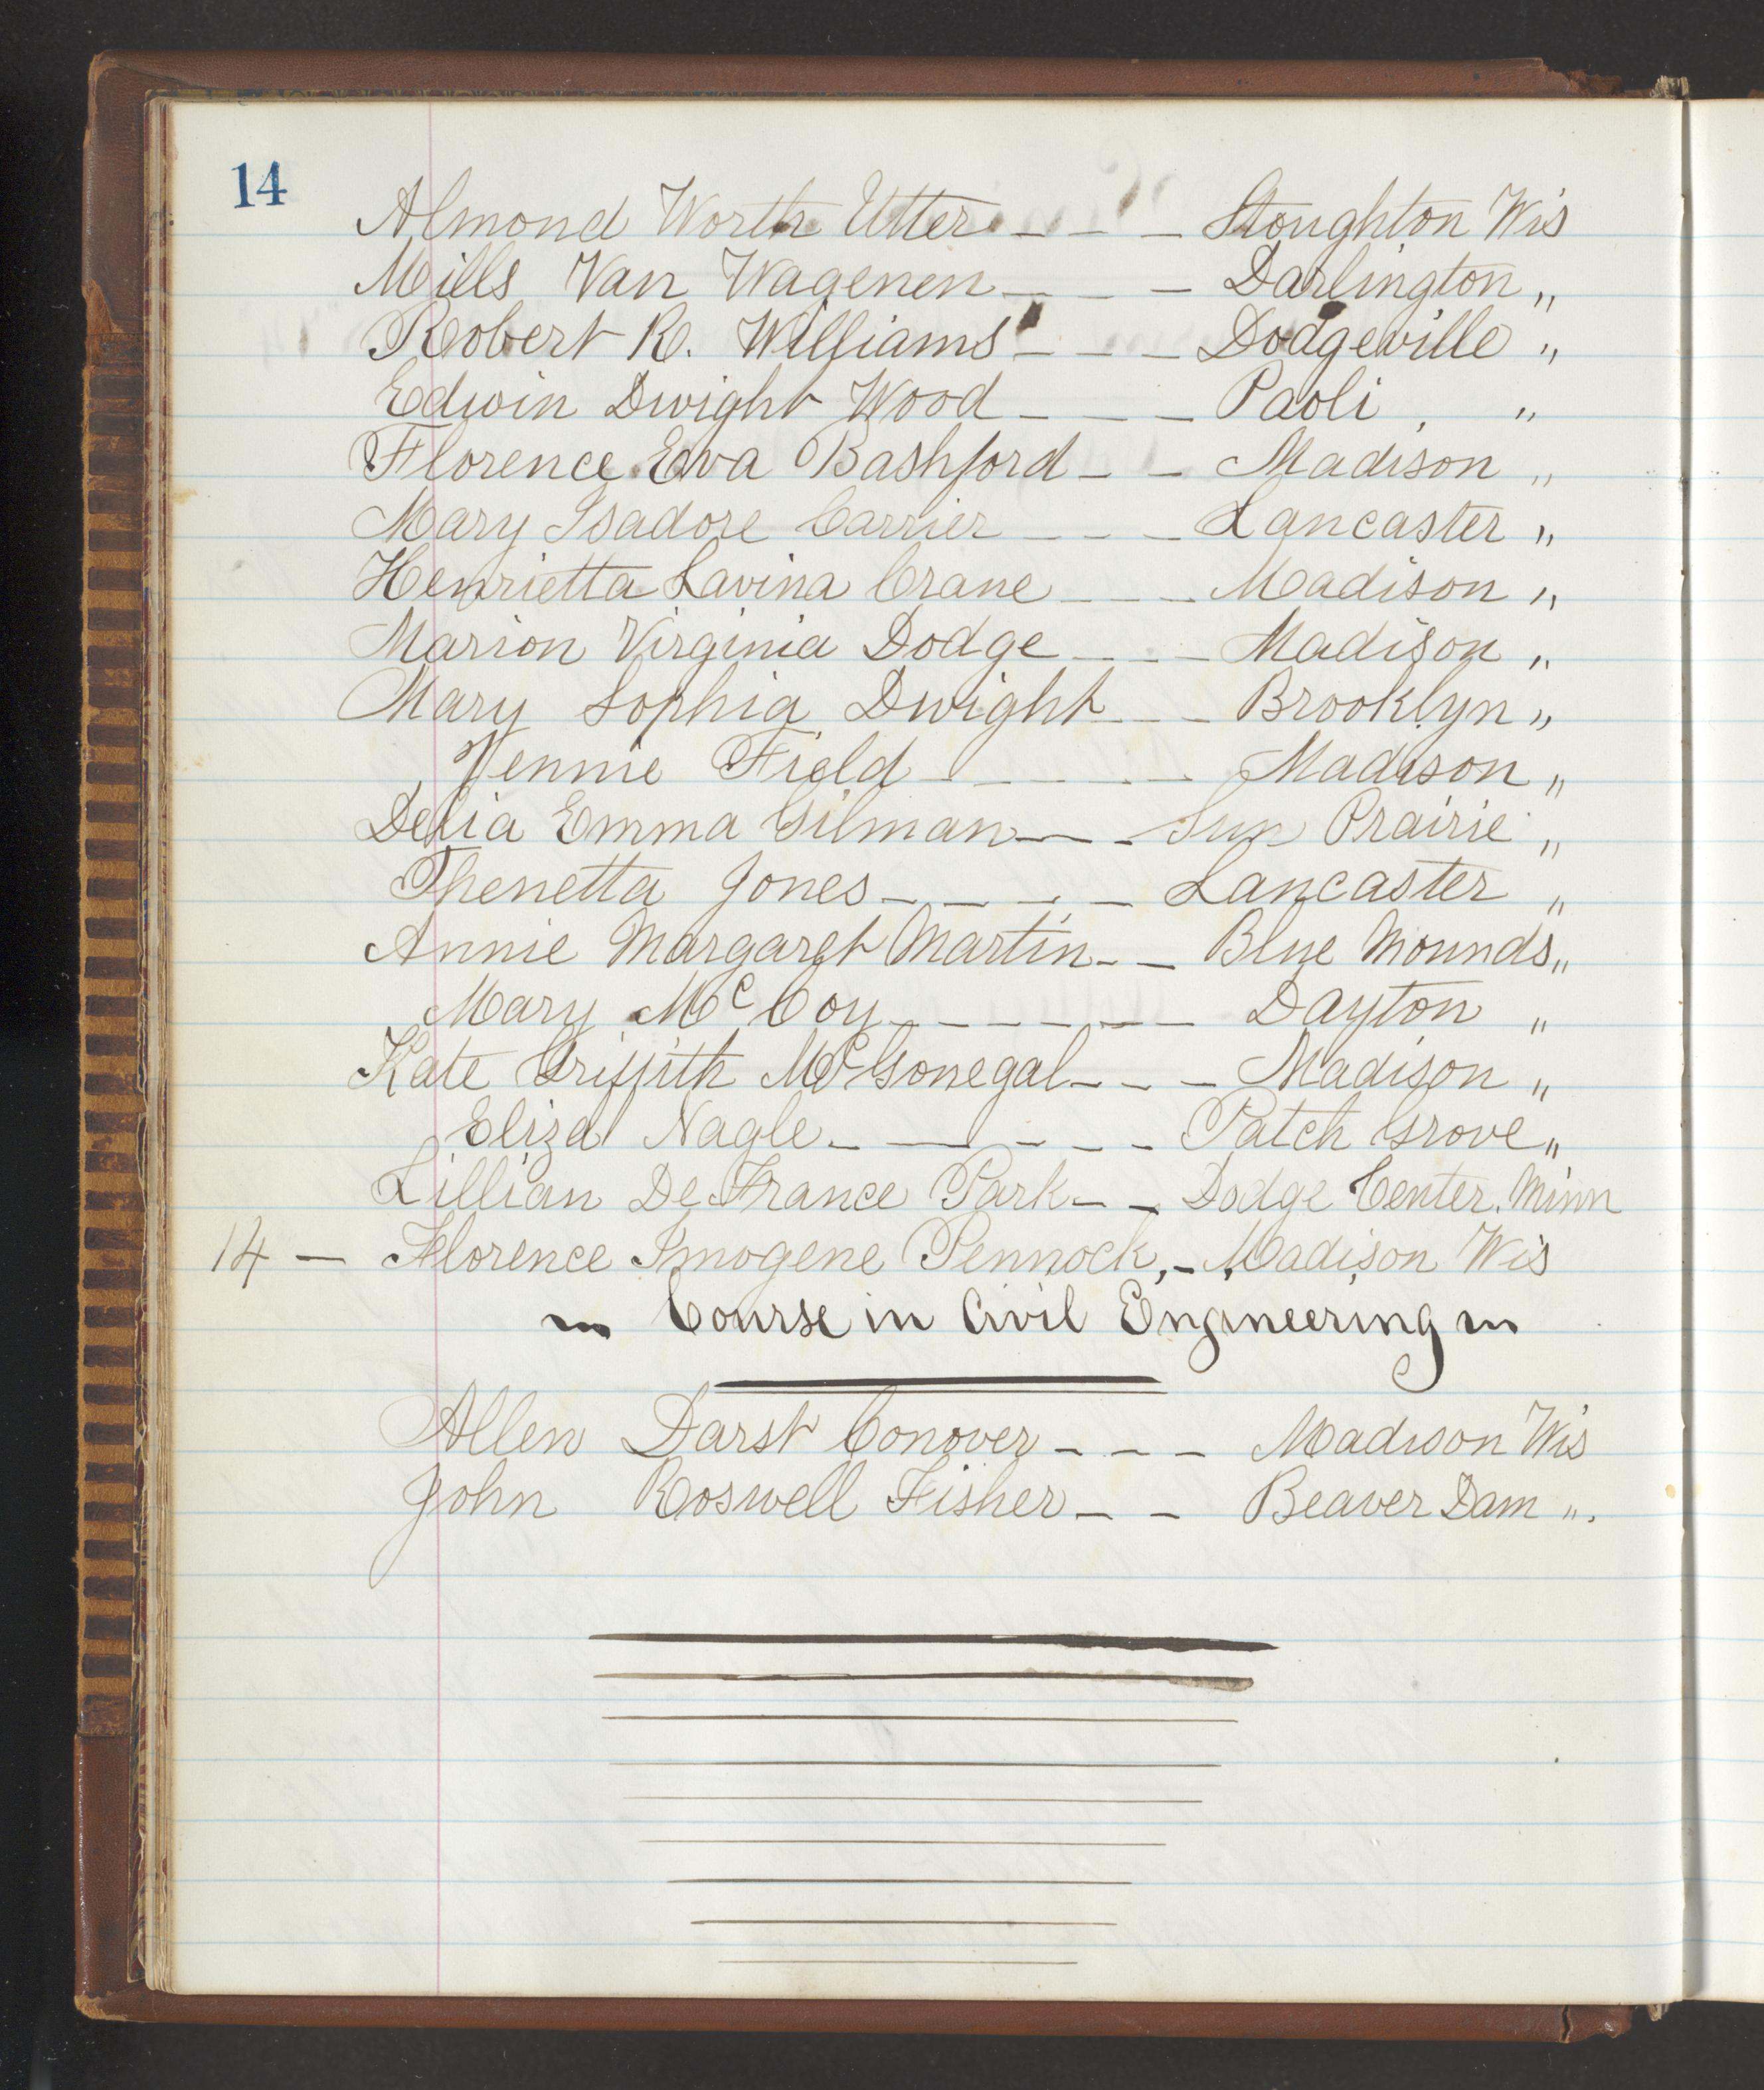 14
Almond Worth Utter - - - Stoughton Wis
Mills Van Wagenen - - - Darlington "
Robert R. Williams - - - Dodgeville "
Edwin Dwight Wood - - - Paoli . "
Florence Eva Bashford - - Madison "
Mary Isadore Carrier - - - Lancaster "
Henrietta Lavina Crane - - - Madison "
Marion Virginia Dodge - - - Madison "
Mary Sophia Dwight - - Brooklyn "
Jennie Field - - - - - Madison "
Delia Emma Gilman - - - Sun Prairie "
Thenetta Jones - - - - - Lancaster "
Annie Margaret Martin - - Blue Mounds "
Mary McCoy - - - - - - Dayton "
Kate Griffith McGonegal - - - Madison "
Eliza Nagle - - - - - Patch Grove "
Lillian De France Park - - Dodge Center. Minn
14 - Florence Imogene Pennock, - Madison Wis
Course in Civil Engineering
Allen Darst Conover - - - Madison Wis
John Roswell Fisher - - Beaver Dam ".